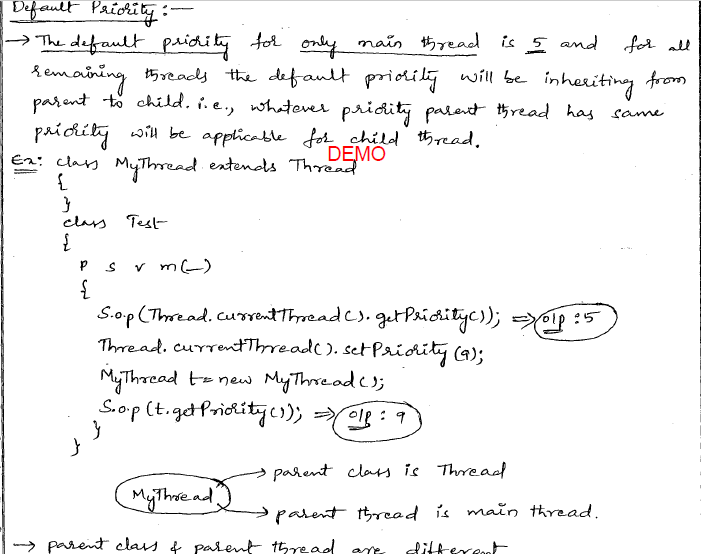 Default Priority :—
→ The default priority for only main thread is 5 and for all
remaining threads the default priority will be inheriting from
parent to child. i.e., whatever priority parent thread has same
priority will be applicable for child thread.
DEMO
Ex: class MyThread extends Thread
{
}
class Test
{
p s v m(—)
{
S.o.p(Thread.currentThread().getPriority()); ⇒ o/p : 5
Thread.currentThread().setPriority(9);
MyThread t = new MyThread();
S.o.p(t.getPriority()); ⇒ o/p : 9
}
}
MyThread → parent class is Thread
→ parent thread is main thread.
→ parent class & parent thread are different